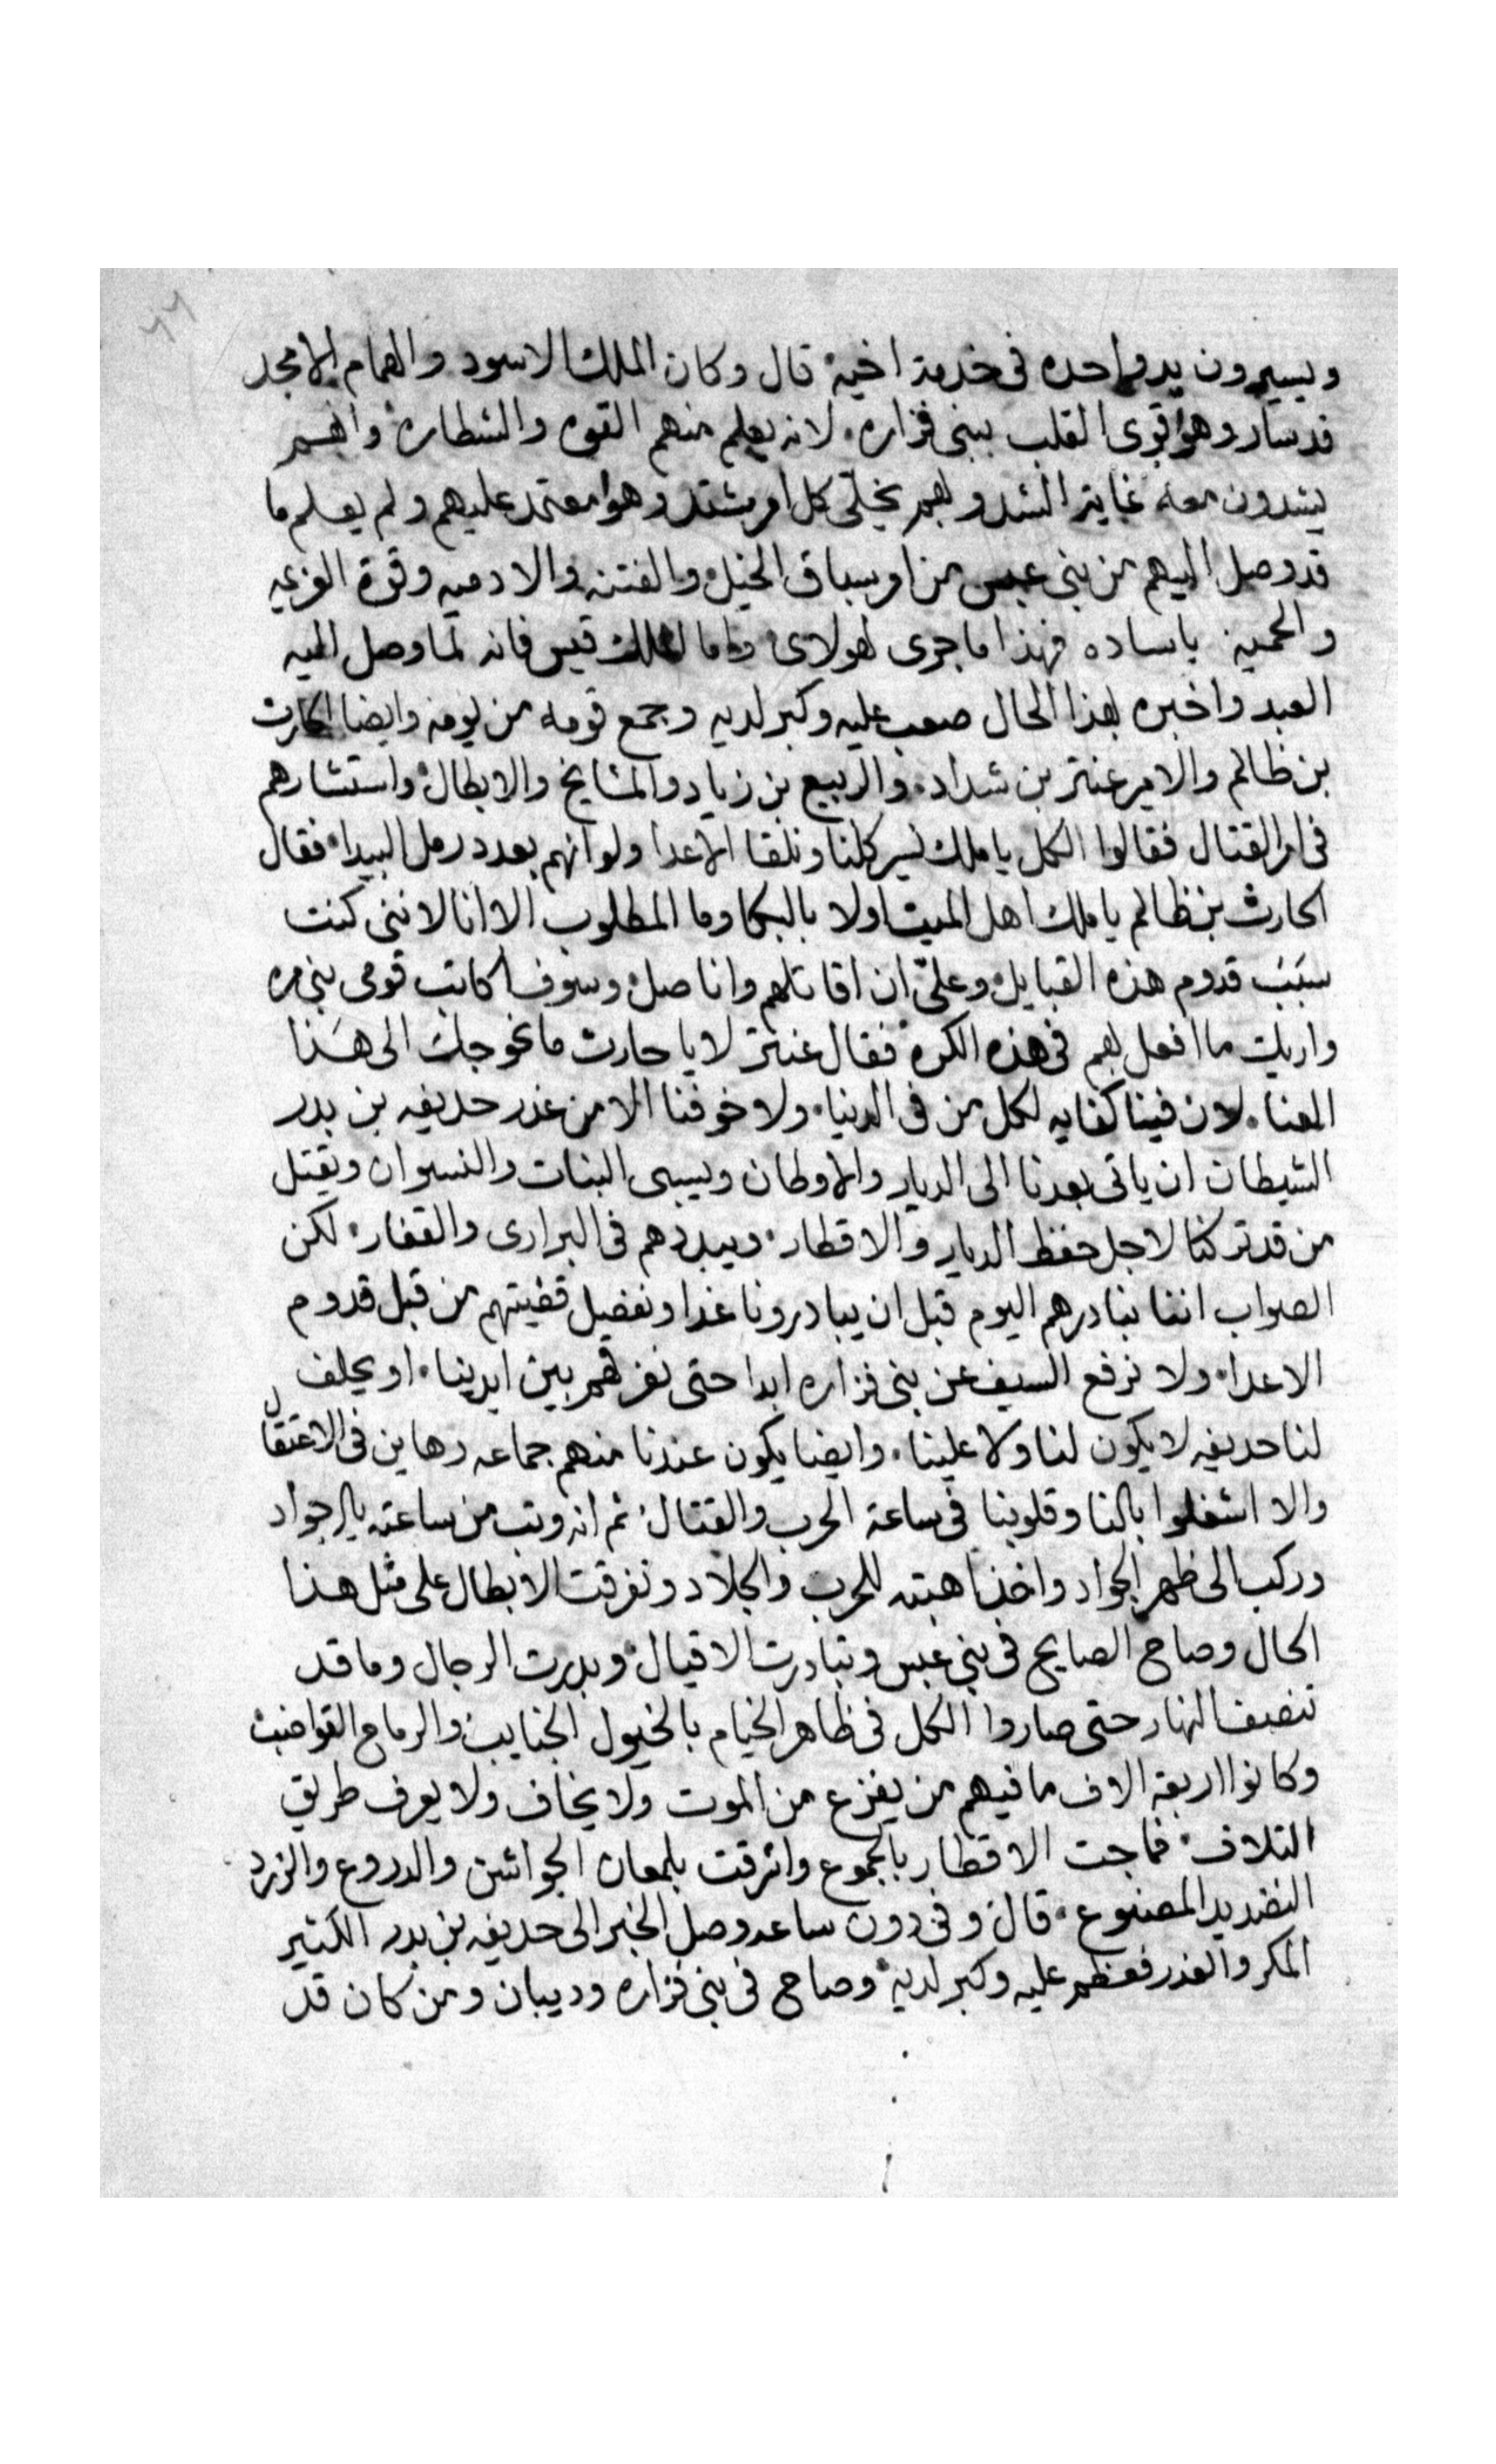 ٦٦
ويسيرون يد واحده فى خدمة اخيه قال وكان الملك الاسود والهمام الامجد
قد سار وهو اقوى القلب ببنى فزاره لانه يعلم منهم القوه والشطاره وانهم
يشدون معه غاية الشد وبهم يخلى كل امر مشتد وهو معتمد عليهم ولم يعلم ما
قد وصل اليهم من بنى عبس من امر سباق الخيل والفتنه والادميه وقوة العزيمه
والحميه ياساده فهذا ما جرى لهولاى واما الملك قيس فانه لما وصل اليه
العبد واخبره بهذا الحال صعب عليه وكبر لديه وجمع قومه من يومه وايضا الحارث
بن ظالم والامير عنتر بن شداد والربيع بن زياد والمشايخ والابطال واستشارهم
فى امر القتال فقالوا الكل ياملك نسير كلنا ونلقا الاعدا ولو انهم بعدد رمل البيدا فقال
الحارث بن ظالم ياملك اهل الميت اولا بالبكا وما المطلوب الا انا لاننى كنت
سبب قدوم هذه القبايل وعلىّ ان اقاتلهم واناصل وسوف اكاتب قومى بنى مره
واريك ما افعل بهم فى هذه الكره فقال عنتر لا يا حارث ما نحوجك الى هذا
العنا لان فينا كفايه لكل من فى الدنيا ولا خوفنا الا من غدر حديفه بن بدر
الشيطان ان ياتى بعدنا الى الديار والاوطان ويسبى البنات والنسوان ويقتل
من قد تركنا لاجل حفظ الديار والاقطار ويبددهم فى البرارى والقفار لكن
الصواب اننا نبادرهم اليوم قبل ان يبادرونا غدا ونفصل قضيتهم من قبل قدوم
الاعدا ولا نرفع السيف عن بنى فزاره ابدا حتى نفرقهم بين ايدينا او يحلف
لنا حديفه لا يكون لنا ولا علينا وايضا يكون عندنا منهم جماعه رهاين فى الاعتقال
والا اشغلوا بالنا وقلوبنا فى ساعة الحرب والقتال ثم انه وثب من ساعته الى الجواد
وركب الى ظهر الجواد واخذ اهبته للحرب والجلاد وتفرقت الابطال على مثل هذا
الحال وصاح الصايح فى بنى عبس وتبادرت الاقيال وبدرت الرجال وما قد
تنصف النهار حتى صاروا الكل فى ظاهر الخيام بالخيول الجنايب والرماح القواضب
وكانوا اربعة الاف ما فيهم من يفزع من الموت ولا يخاف ولا يعرف طريق
التلاف فماجت الاقطار بالجموع واشرقت بلمعان الجواشن والدروع والزرد
النضديد المصنوع قال وفى دون ساعه وصل الخبر الى حديفه بن بدر الكثير
المكر والغدر فعظم عليه وكبر لديه وصاح فى بنى فزاره وديبان ومن كان قد